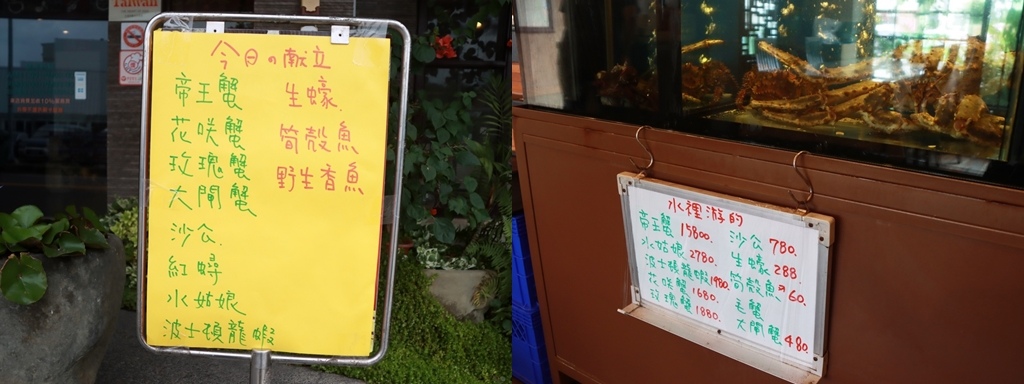 今日の献立
帝王蟹 生蠔
花咲蟹 筍殼魚
玫瑰蟹 野生香魚
大閘蟹
沙公
紅蟳
水姑娘
波士頓龍蝦
水裡游的
帝王蟹 15800. 沙公 780.
水姑娘 2780. 生蠔 288
波士頓龍蝦 1980. 筍殼魚 60.
花咲蟹 1680. 毛蟹
玫瑰蟹 1880. 大閘蟹 480.